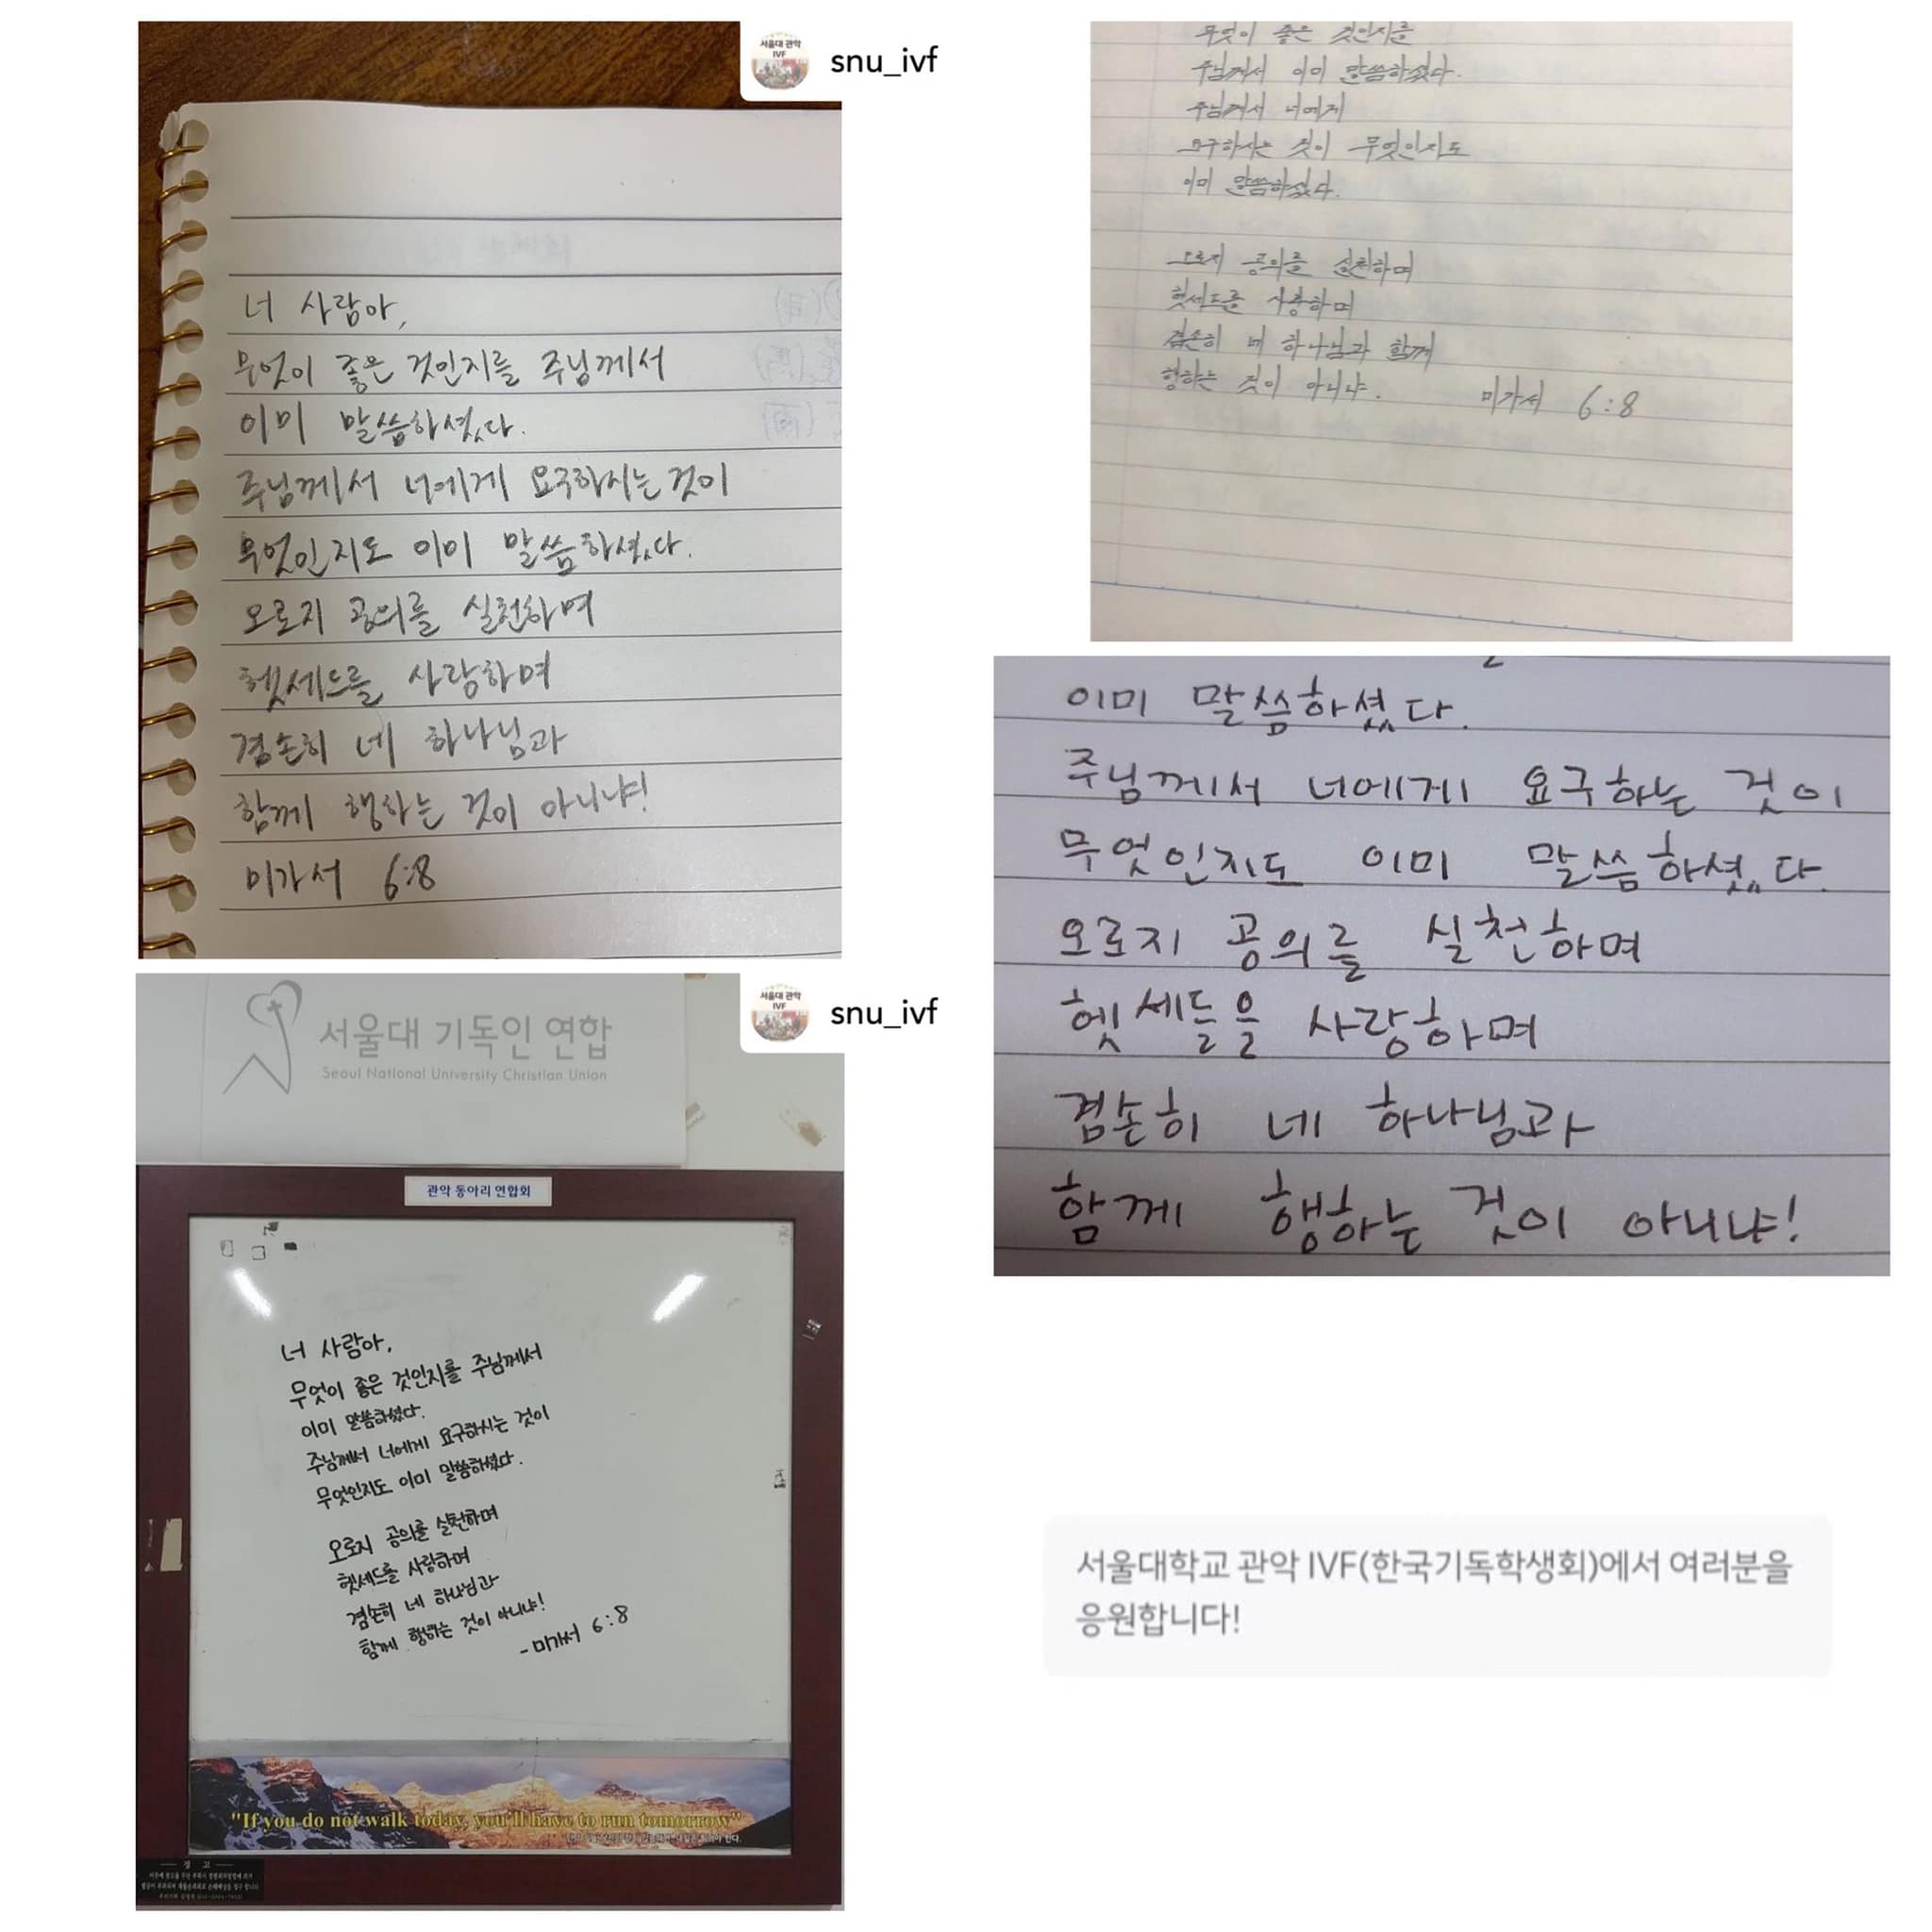 snu_ivf
서울대 관악
IVF
너 사람아,
무엇이 좋은 것인지를 주님께서
이미 말씀하셨다.
주님께서 너에게 요구하시는 것이
무엇인지도 이미 말씀하셨다.
오로지 공의를 실천하며
헷세드를 사랑하며
겸손히 네 하나님과
함께 행하는 것이 아니냐!
미가서 6:8
무엇이 좋은 것인지를
주님께서 이미 말씀하셨다.
주님께서 너에게
요구하시는 것이 무엇인지도
이미 말씀하셨다.
오로지 공의를 실천하며
헷세드를 사랑하며
겸손히 네 하나님과 함께
행하는 것이 아니냐. 미가서 6:8
이미 말씀하셨다.
주님께서 너에게 요구하는 것이
무엇인지도 이미 말씀하셨다.
오로지 공의를 실천하며
헷세들을 사랑하며
겸손히 네 하나님과
함께 행하는 것이 아니냐!
snu_ivf
서울대 관악
IVF
서울대 기독인 연합
Seoul National University Christian Union
관악 동아리 연합회
너 사람아,
무엇이 좋은 것인지를 주님께서
이미 말씀하셨다.
주님께서 너에게 요구하시는 것이
무엇인지도 이미 말씀하셨다.
오로지 공의를 실천하며
헷세드를 사랑하며
겸손히 네 하나님과
함께 행하는 것이 아니냐!
- 미가서 6:8
"If you do not walk today, you'll have to run tomorrow"
경 고
서울대학교 관악 IVF(한국기독학생회)에서 여러분을
응원합니다!